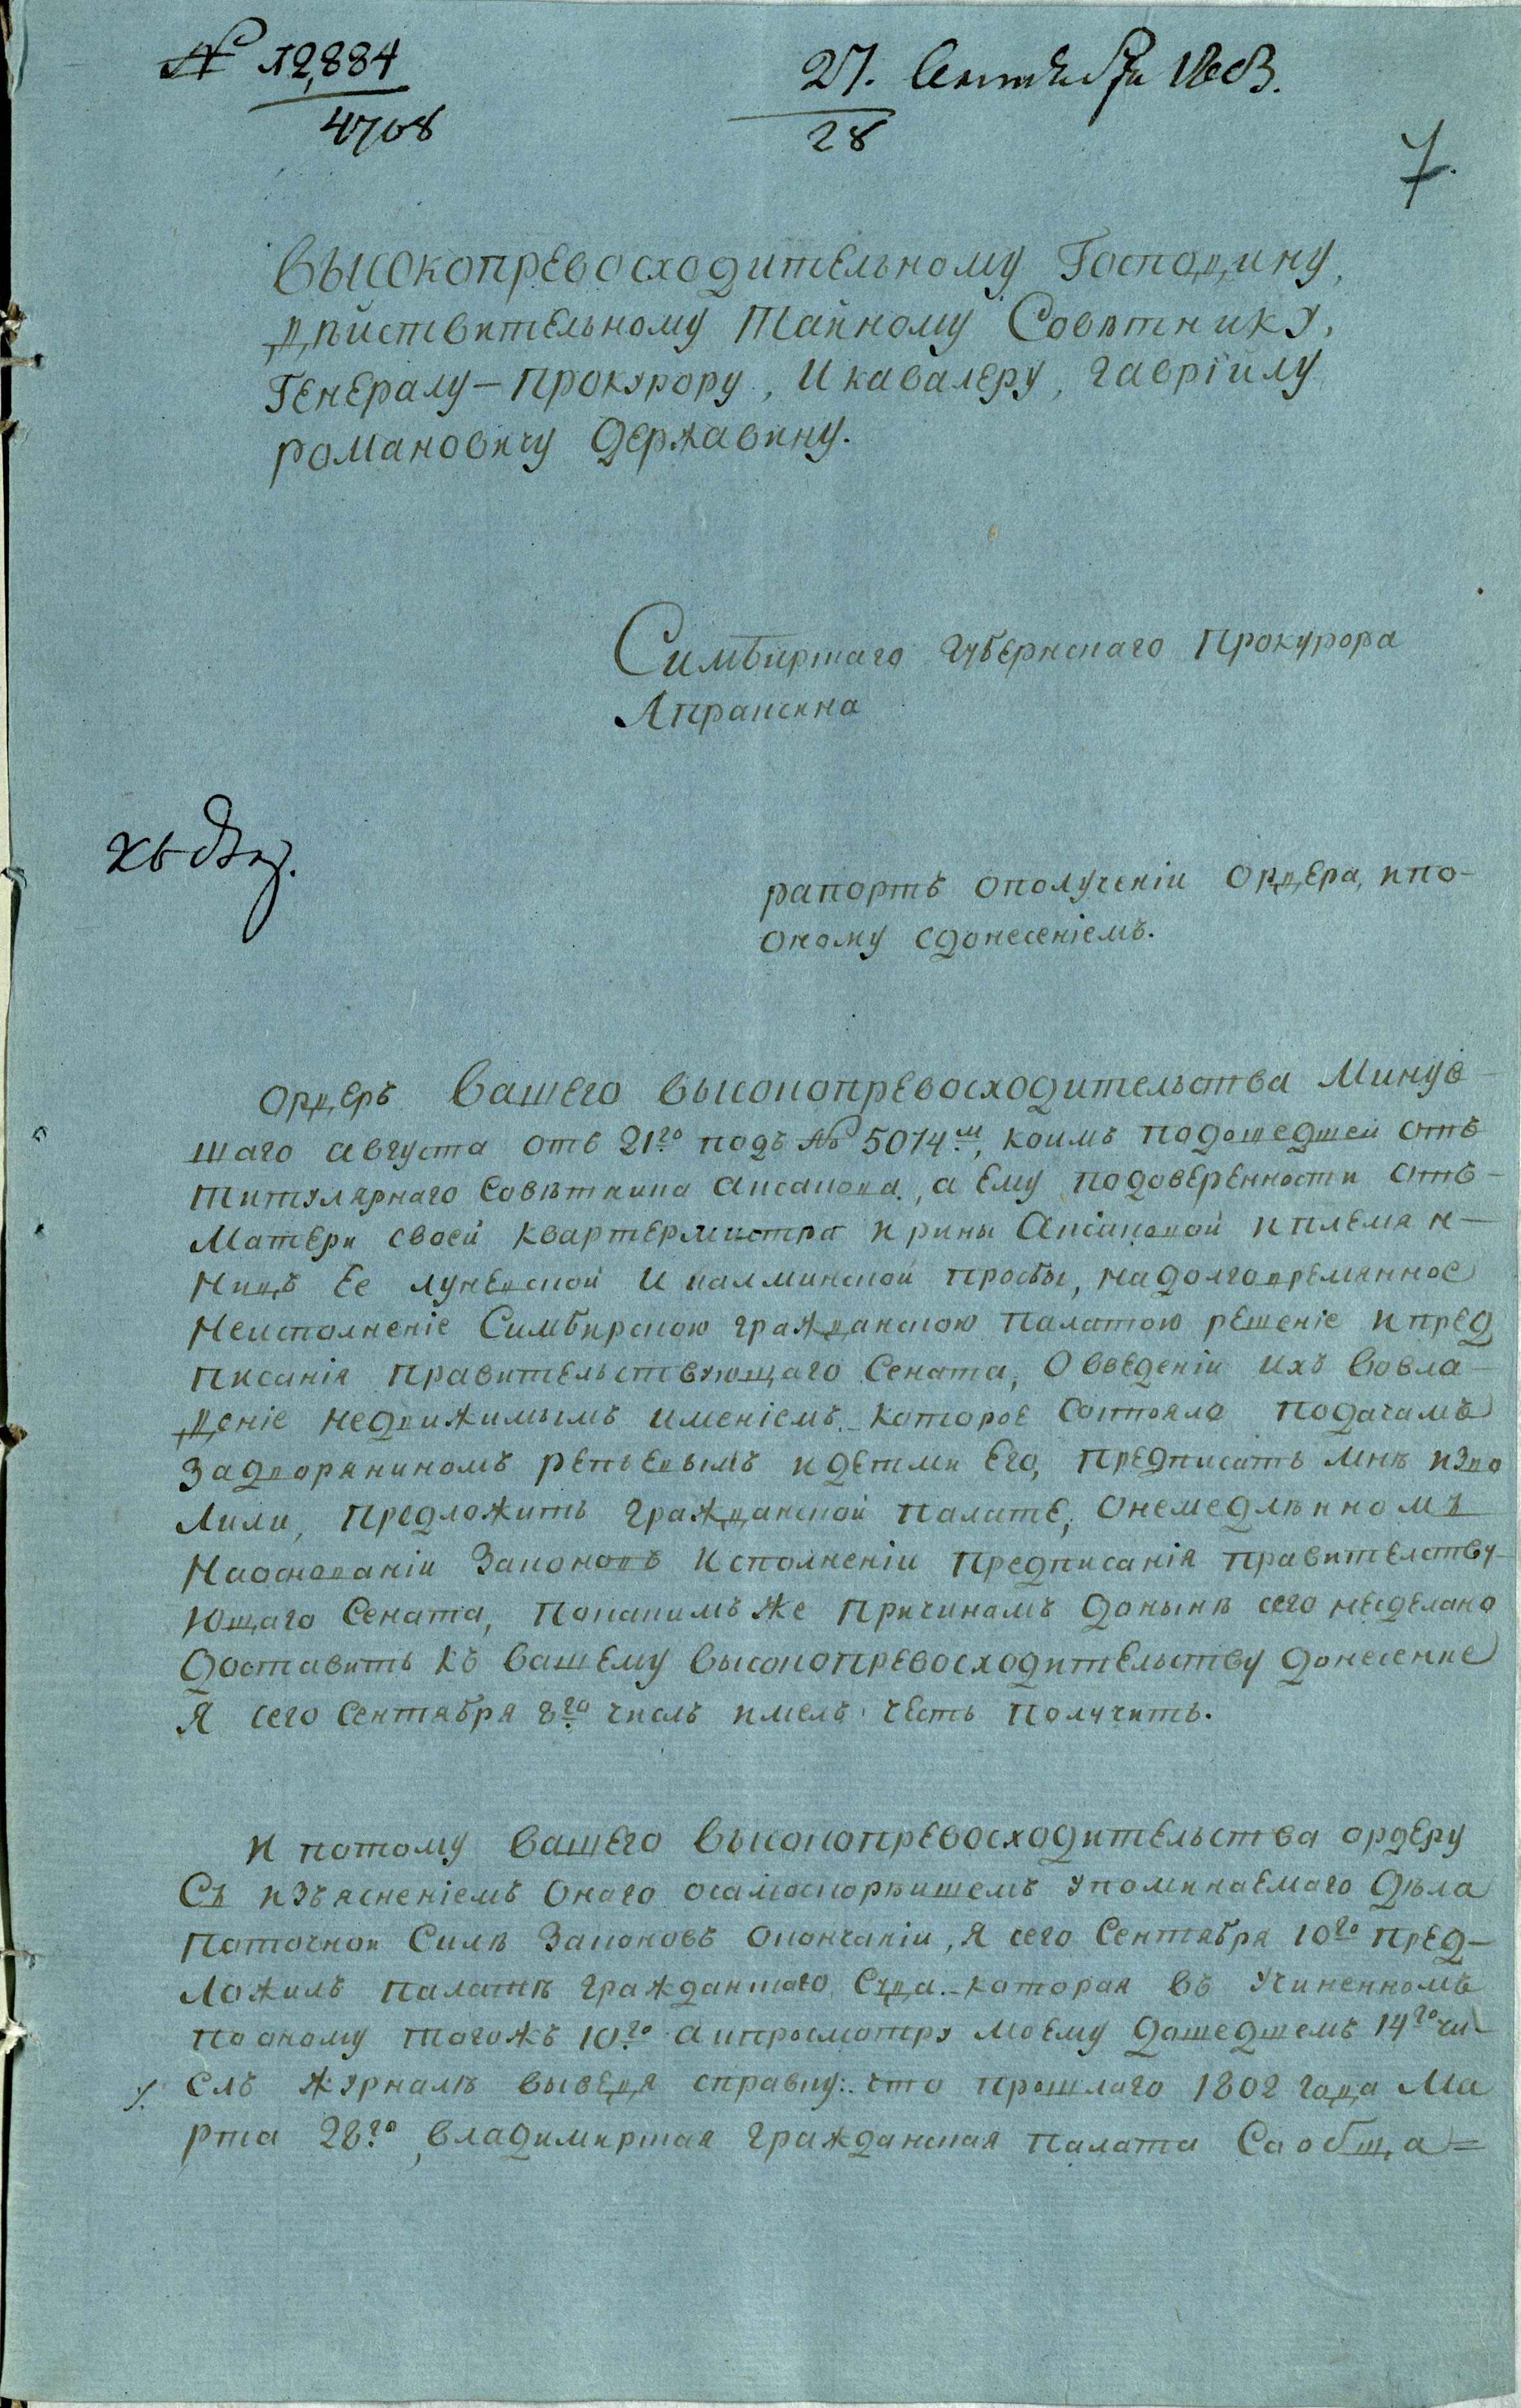 № 12,884
4708
27. Сентября 1803.
28
7.
Высокопревосходительному Господину,
Дѣйствительному Тайному Совѣтнику,
Генералу-Прокурору, и кавалеру, гавріилу
романовичу Державину.
Симбирскаго губернскаго Прокурора
Апраксина
рапортъ ополученіи ордера, ипо-
оному сдонесеніемъ.
ордеръ Вашего высокопревосходительства Минув-
шаго августа отъ 21го подъ № 5074м, коимъ подошедшей отъ
титулярнаго Совѣтника , а ему подоверенности отъ-
Матери своей квартермистра ирины иплемян-
ницъ ее и просбы, надолговременное
Неисполненіе Симбирскою гражданскою палатою решеніе ипред
писанія правительствующаго Сената, Овведеніи ихъ вовла-
деніе недвижимымъ именіемъ которое состояло подачамъ
задворяниномъ репьевымъ идетми Его, предписать мнѣ изво
лили, предложить гражданской палате, онемедлѣнномъ
Наоснованіи Законовъ исполненіи предписанія правителству-
ющаго Сената, покакимъ же причинамъ донынѣ сего несделано
доставить къ вашему высокопревосходительству донесение
Я сего Сентября 8го числъ имелъ честь получить.
и потому вашего высокопревосходительства ордеру
Съ изъясненіемъ онаго осамоскорѣишемъ упоминаемаго дѣла
поточной Силѣ Законовъ окончаніи, я сего Сентября 10го пред-
ложилъ палатѣ гражданскаго Суда которая въ учиненномъ
пооному тогожъ 10го аипросмотру моему дошедшемъ 14го чи-
слъ журналѣ выведя справку: что прошлаго 1802 года Ма
рта 28го, владимирская гражданская палата Сообща=